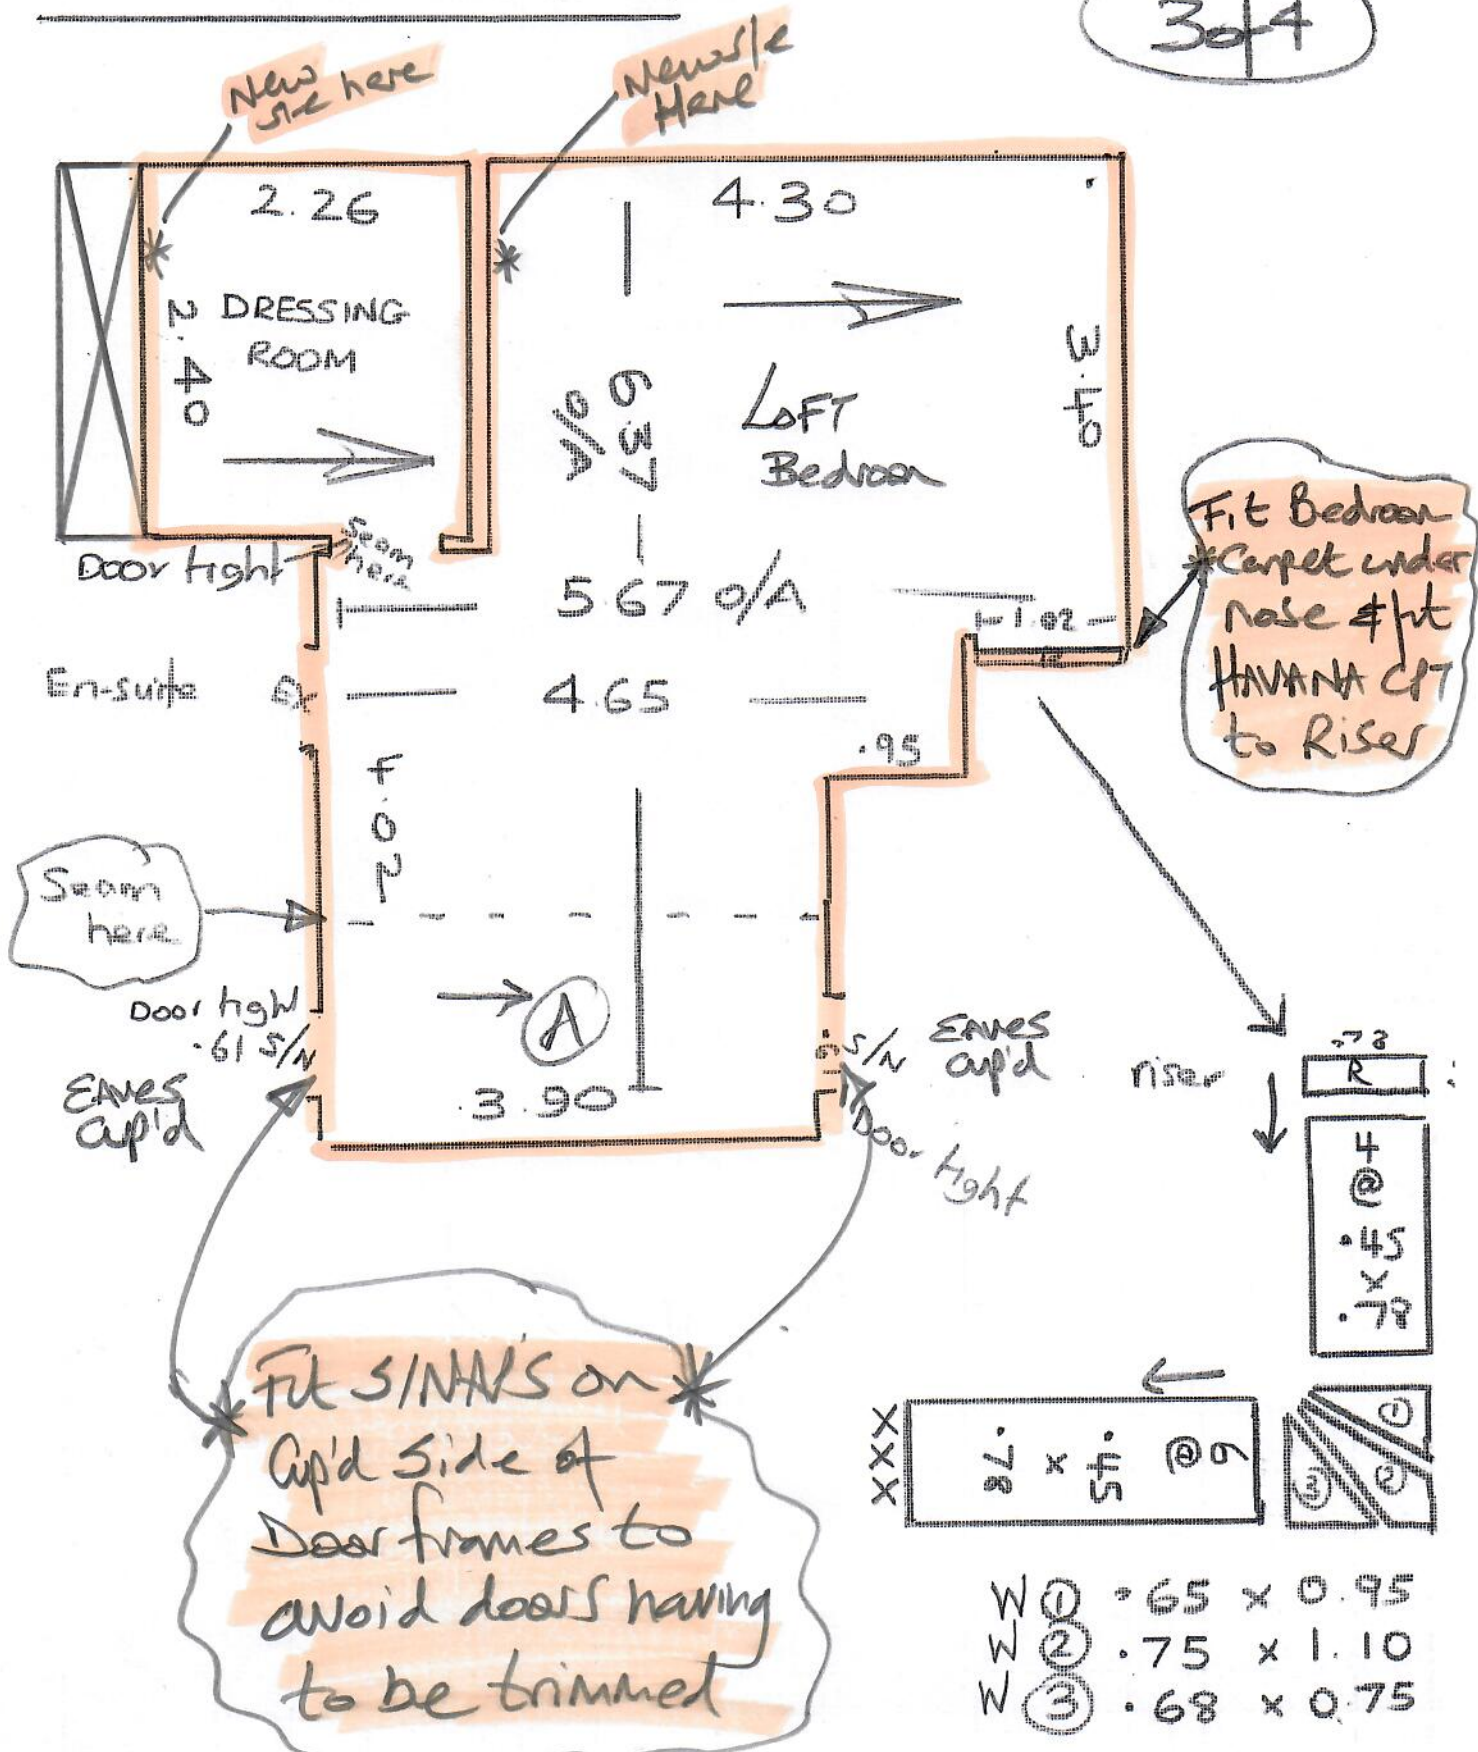 3 of 4
New
s/e here
New s/e
Here
2.26
4.30
2.40
DRESSING
ROOM
6.37
o/A
LOFT
Bedroom
3.40
Door tight
Seam
here
5.67 o/A
1.02
Fit Bedroom
*Carpet under
nose & fit
HAVANA CPT
to Riser
En-suite
4.65
.95
4.02
Seam
here
A
3.90
Door tight
.61 S/N
EAVES
Cup'd
S/N
EAVES
Cup'd
Door tight
riser
.78
R
4
@
.45
x
.78
Fit S/NAP'S on
Cup'd side of
Door frames to
avoid doors having
to be trimmed
XXX
6
@
.45
x
.78
1
2
3
W 1 .65 x 0.95
W 2 .75 x 1.10
W 3 .68 x 0.75